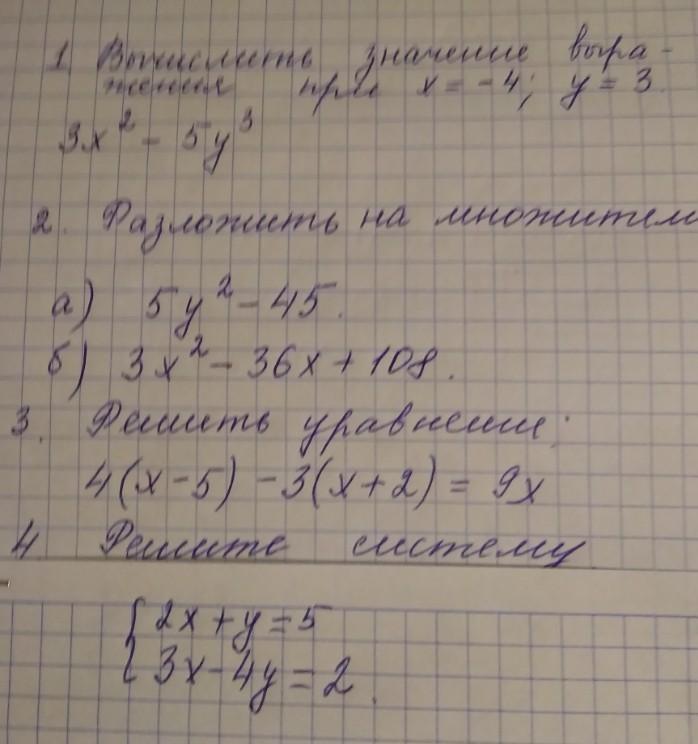 1. Вычислить значение выра-
жения при x = -4; y = 3.
3x² - 5y³
2. Разложить на множители
а) 5y² - 45.
б) 3x² - 36x + 108.
3. Решить уравнение:
4(x-5) - 3(x+2) = 9x
4 Решите систему
{ 2x + y = 5
3x - 4y = 2.